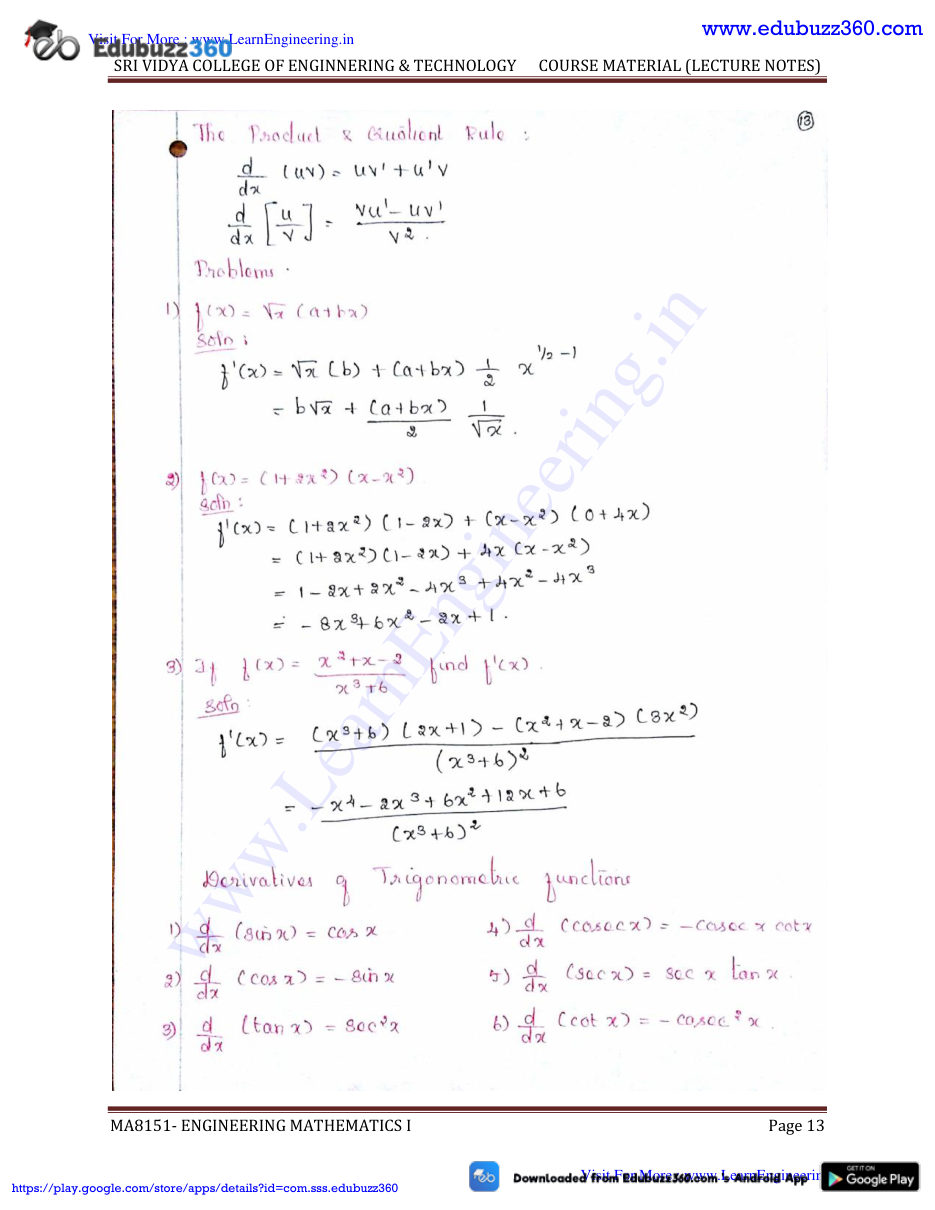 www.edubuzz360.com
Visit For More : www.LearnEngineering.in
Edubuzz360
SRI VIDYA COLLEGE OF ENGINNERING & TECHNOLOGY COURSE MATERIAL (LECTURE NOTES)
13
The Product & Quotient Rule :
d/dx (uv) = uv' + u'v
d/dx [u/v] = (vu' - uv') / v² .
Problems .
1) f(x) = √x (a+bx)
Soln :
f'(x) = √x (b) + (a+bx) 1/2 x^(1/2 - 1)
= b√x + (a+bx)/2 1/√x .
2) f(x) = (1+2x²) (x-x²)
Soln :
f'(x) = (1+2x²) (1-2x) + (x-x²) (0+4x)
= (1+2x²)(1-2x) + 4x (x-x²)
= 1-2x+2x²-4x³+4x²-4x³
= -8x³+6x²-2x+1 .
3) If f(x) = (x²+x-2)/(x³+6) find f'(x) .
Soln :
f'(x) = ((x³+6) (2x+1) - (x²+x-2) (3x²)) / (x³+6)²
= (-x⁴-2x³+6x²+12x+6) / (x³+6)²
Derivatives of Trigonometric functions
1) d/dx (sin x) = cos x
4) d/dx (cosec x) = -cosec x cot x
2) d/dx (cos x) = -sin x
5) d/dx (sec x) = sec x tan x .
3) d/dx (tan x) = sec²x
6) d/dx (cot x) = -cosec² x .
www.LearnEngineering.in
MA8151- ENGINEERING MATHEMATICS I Page 13
https://play.google.com/store/apps/details?id=com.sss.edubuzz360
Downloaded from EduBuzz360.com 's Android App
Visit For More : www.LearnEngineerin
GET IT ON
Google Play